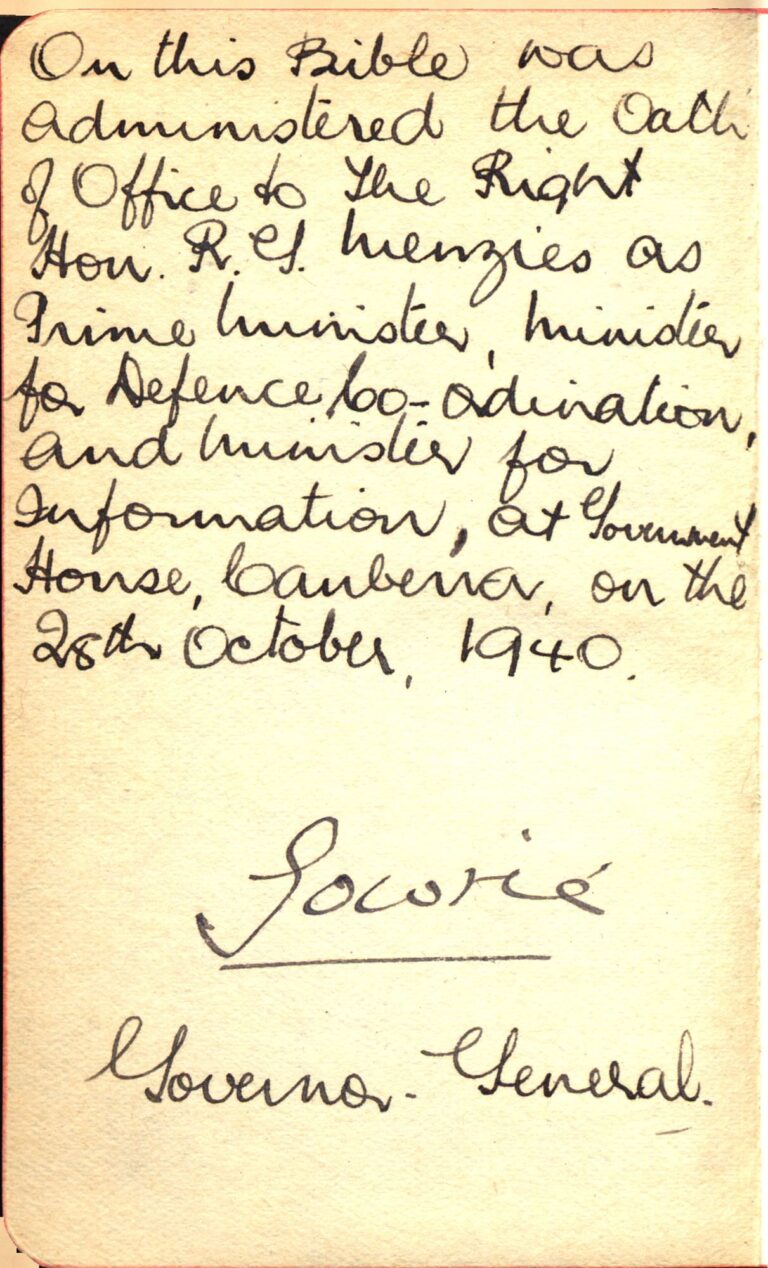 On this Bible was
administered the Oath
of Office to The Right
Hon. R. G. Menzies as
Prime Minister, Minister
for Defence Co-ordination,
and Minister for
Information, at Government
House, Canberra, on the
28th October, 1940.
Gowrie
Governor-General.